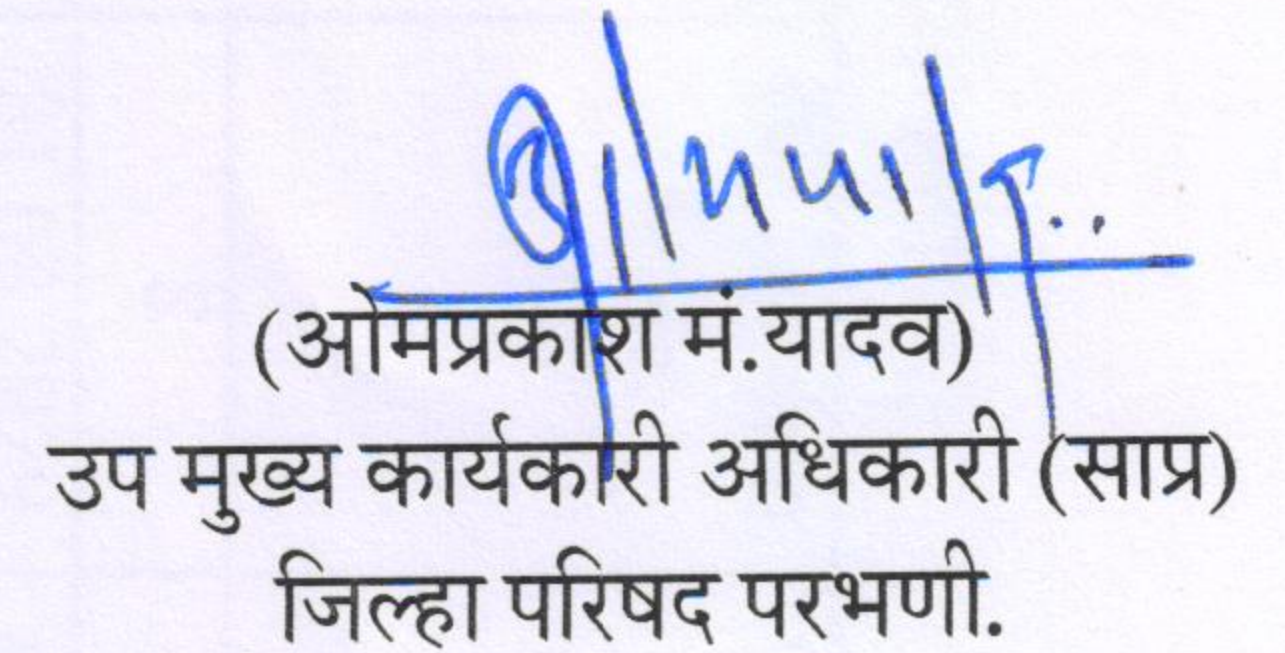 (ओमप्रकाश मं.यादव)
उप मुख्य कार्यकारी अधिकारी (साप्र)
जिल्हा परिषद परभणी.